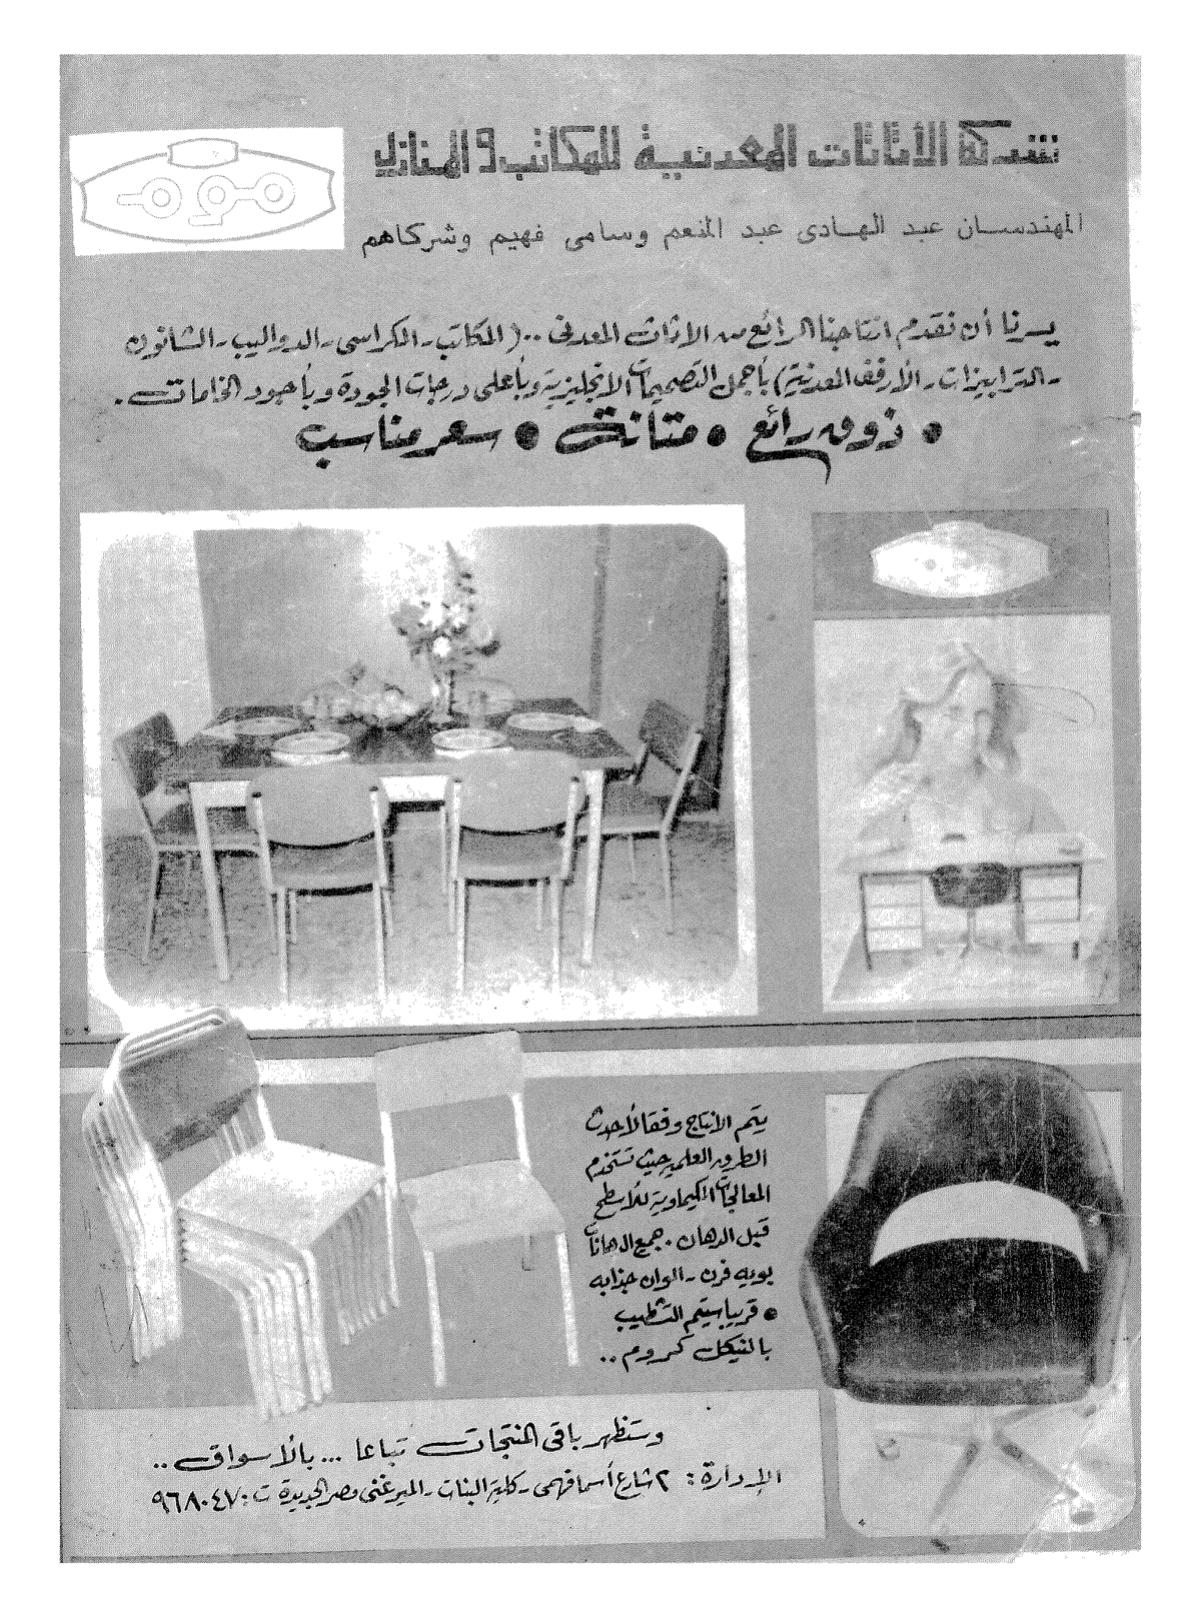 شركة الأثاثات المعدنية للمكاتب و المنازل
المهندسان عبد الهادى عبد المنعم وسامى فهيم وشركاهم
يسرنا أن نقدم انتاجنا الرائع من الاثاث المعدنى ..( المكاتب - الكراسى - الدواليب - الشانون
- الترابيزات - الأرفف المعدنية) بأجمل التصميمات الانجليزية وبأعلى درجات الجودة وبأجود الخامات .
• ذوق رائع • متانة • سعر مناسب
يتم الانتاج وفقا لأحدث
الطرق العلمية حيث تستخدم
المعالجات الكيماوية للأسطح
قبل الدهان . جميع الدهانات
بوية فرن - الوان جذابه
• قريبا سيتم التشطيب
بالنيكل كروم ..
وستظهر باقى المنتجات تباعا ... بالأسواق ..
الإدارة : ٢ شارع أسما فهمى - كلية البنات - الميرغنى مصر الجديدة ت : ٩٦٨٠٤٧